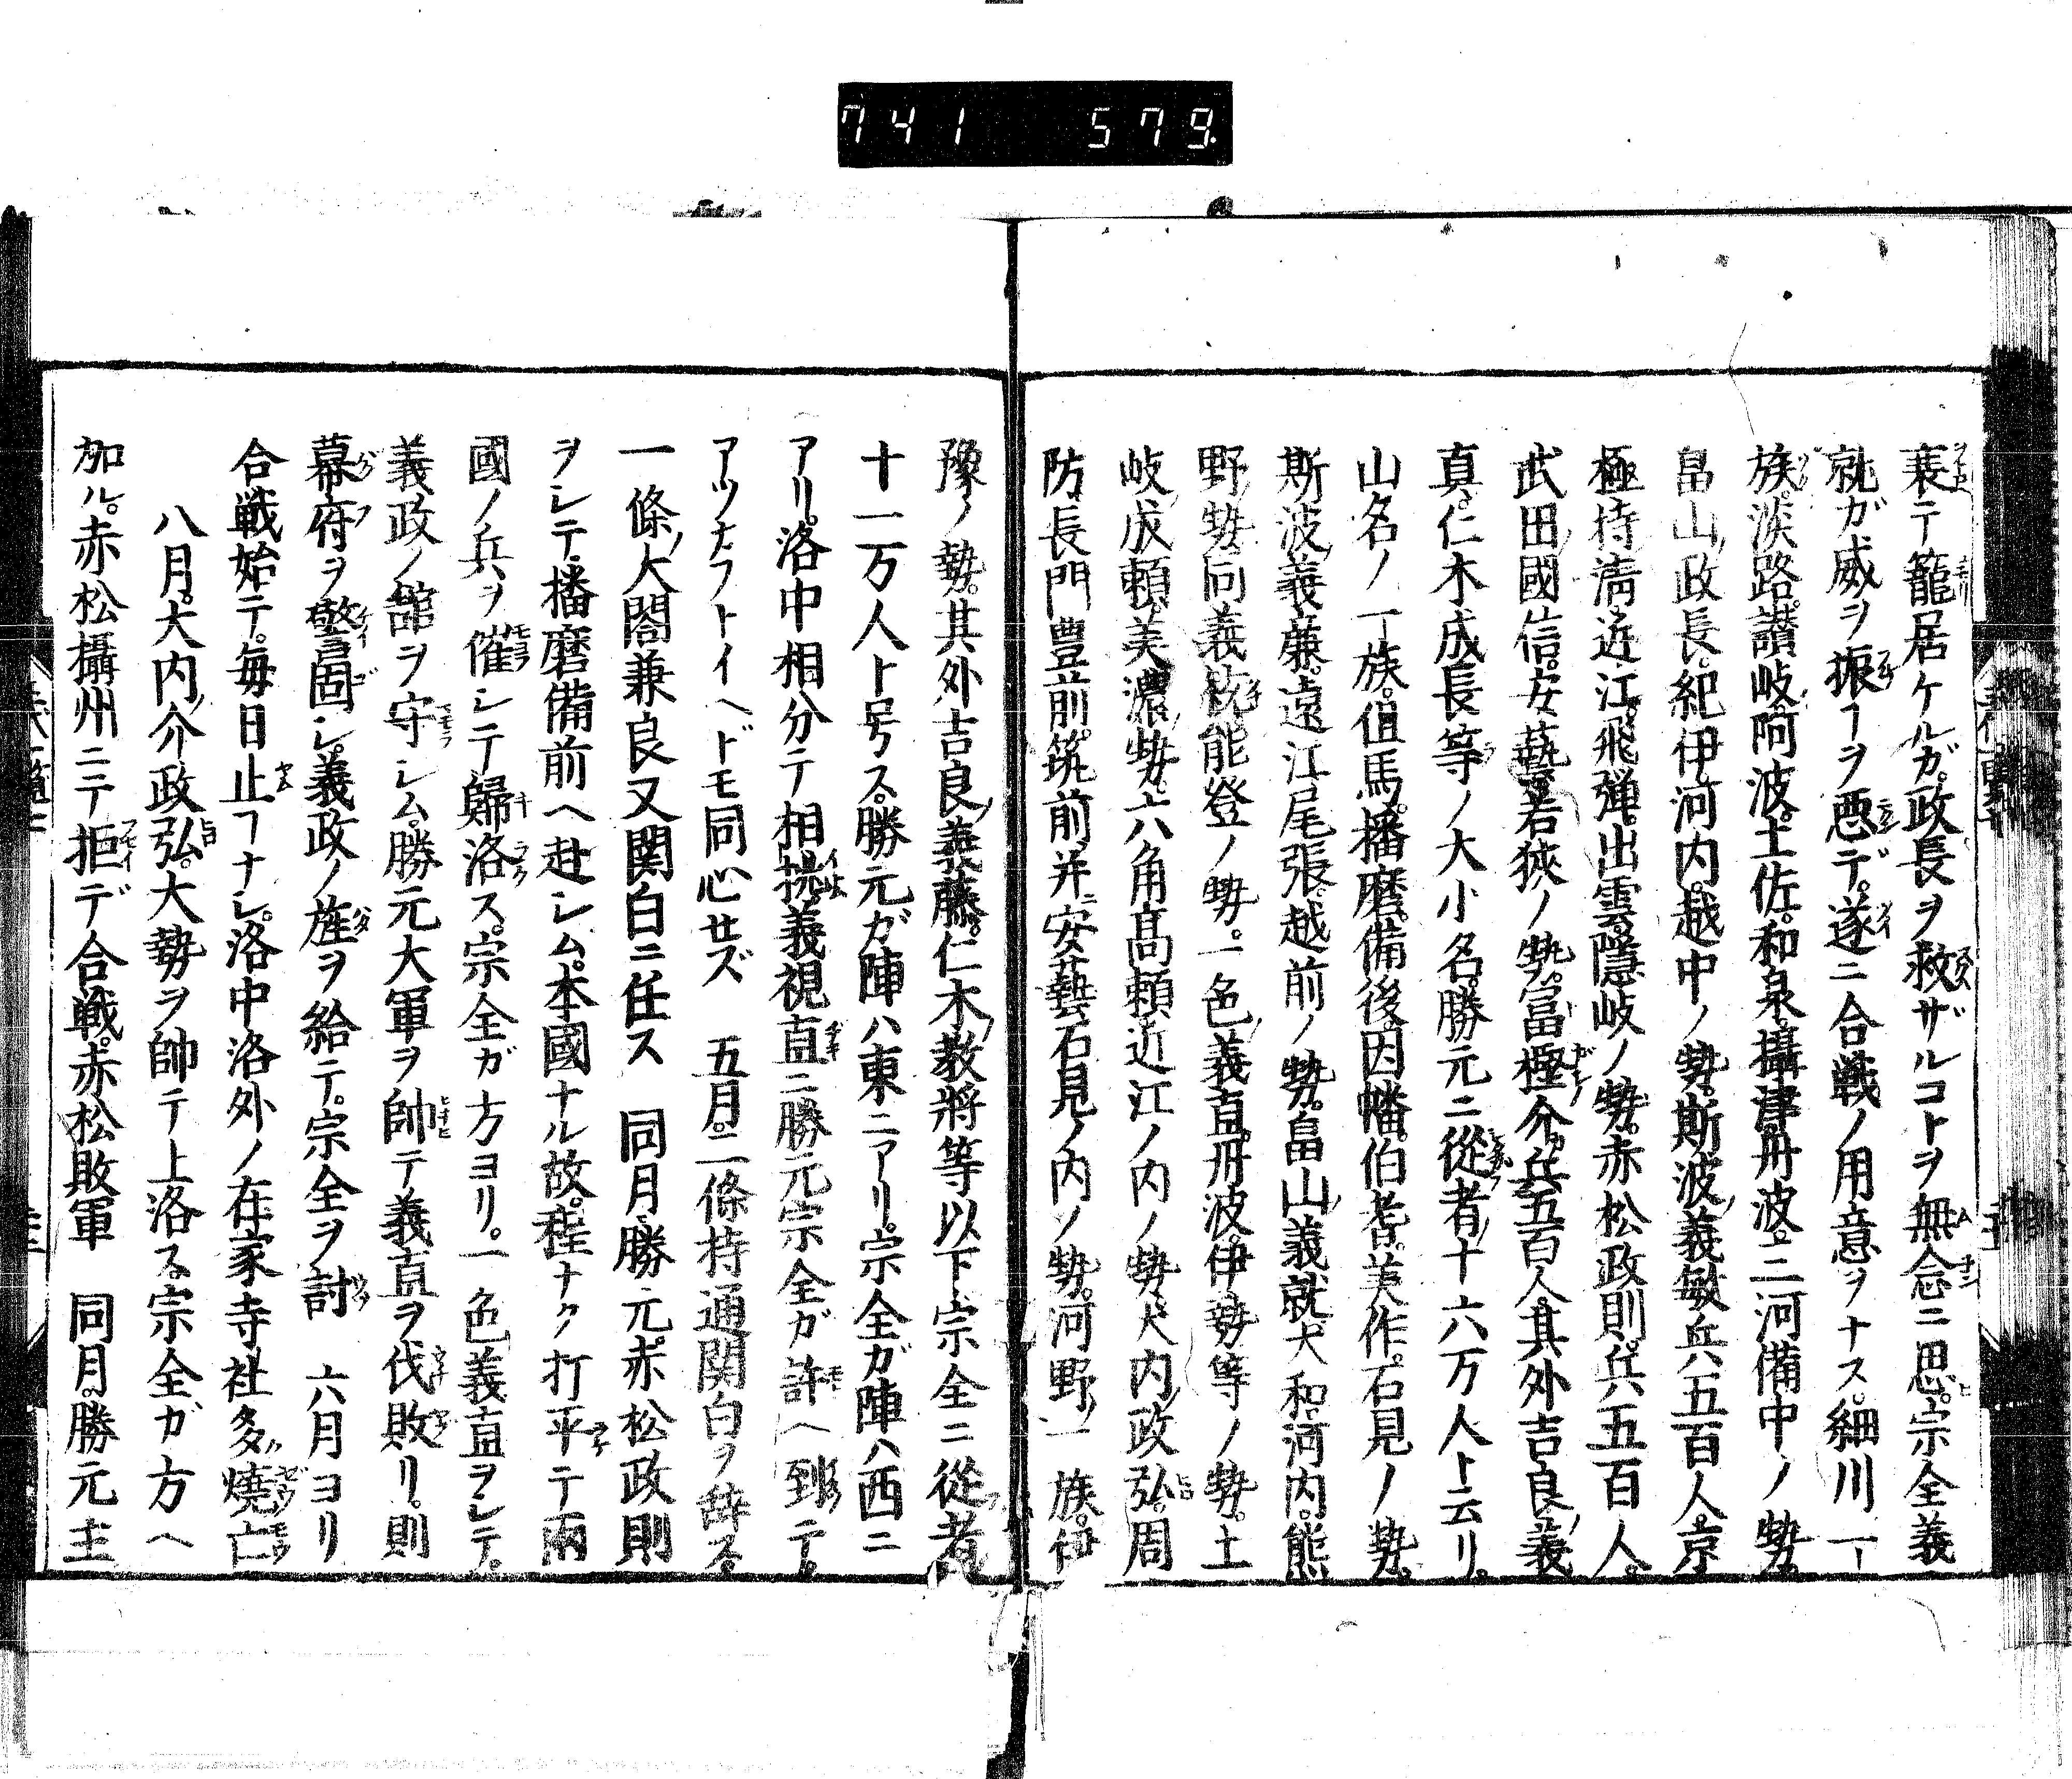 741 579
裹テ籠居ケルガ。政長ヲ救ザルコトヲ無念ニ思。宗全義
就ガ威ヲ振フヿヲ惡デ。遂ニ合戦ノ用意ヲナス。細川一
族。淡路。讃岐。阿波。土佐。和泉。攝津。丹波。三河備中ノ勢。
畠山政長。紀伊河内。越中ノ勢。斯波義敏兵五百人。京
極持淸。近江。飛弾。出雲。隱岐ノ勢。赤松政則。兵五百人。
武田國信。安藝。若狹ノ勢。富樫介。兵五百人。其外吉良義
真。仁木成長等ノ大小名。勝元ニ從者十六万人ト云リ。
山名ノ一族。但馬。播磨。備後。因幡。伯耆。美作。石見ノ勢。
斯波義廉。遠江尾張。越前ノ勢。畠山義就。大和。河内。熊
野ノ勢。同義統。能登ノ勢。一色義直。丹波。伊勢等ノ勢。土
岐成頼。美濃ノ勢。六角高頼近江ノ内ノ勢。大内政弘。周
防。長門豊前。筑前。并ニ安藝石見ノ内ノ勢。河野一族。伊
豫ノ勢。其外吉良義藤。仁木教將等以下。宗全ニ從者
十一万人ト号ス。勝元ガ陣ハ東ニアリ。宗全ガ陣ハ西ニ
アリ。洛中相分テ相挑。義視直ニ勝元宗全ガ許ヘ到テ。
アツナフトイヘドモ同心セズ　五月。二條持通関白ヲ辞ス。
一條大閤兼良又関白ニ任ス　同月。勝元。赤松政則
ヲシテ。播磨備前ヘ赴シム。本國ナル故。程ナク打平テ兩
國ノ兵ヲ催シテ歸洛ス。宗全ガ方ヨリ。一色義直ヲシテ。
義政ノ舘ヲ守シム。勝元大軍ヲ帥テ義直ヲ伐敗リ。則
幕府ヲ警固シ。義政ノ旌ヲ給テ。宗全ヲ討　六月ヨリ
合戦始テ。毎日止ヿナシ。洛中洛外ノ在家寺社多ク燒亡
八月。大内介政弘。大勢ヲ帥テ上洛ス。宗全ガ方ヘ
加ル。赤松攝州ニテ拒デ合戦。赤松敗軍　同月。勝元主